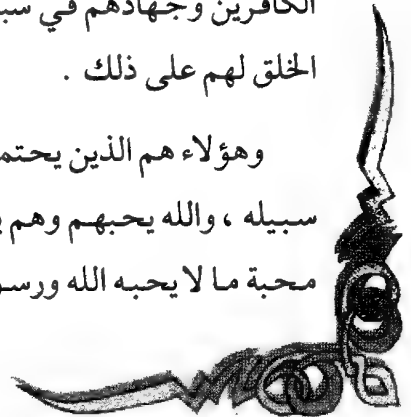 الكافرين وجهادهم في سب
الخلق لهم على ذلك .
وهؤلاء هم الذين يحتمـ
سبيله ، والله يحبهم وهم يـ
محبة ما لا يحبه الله ورسـ